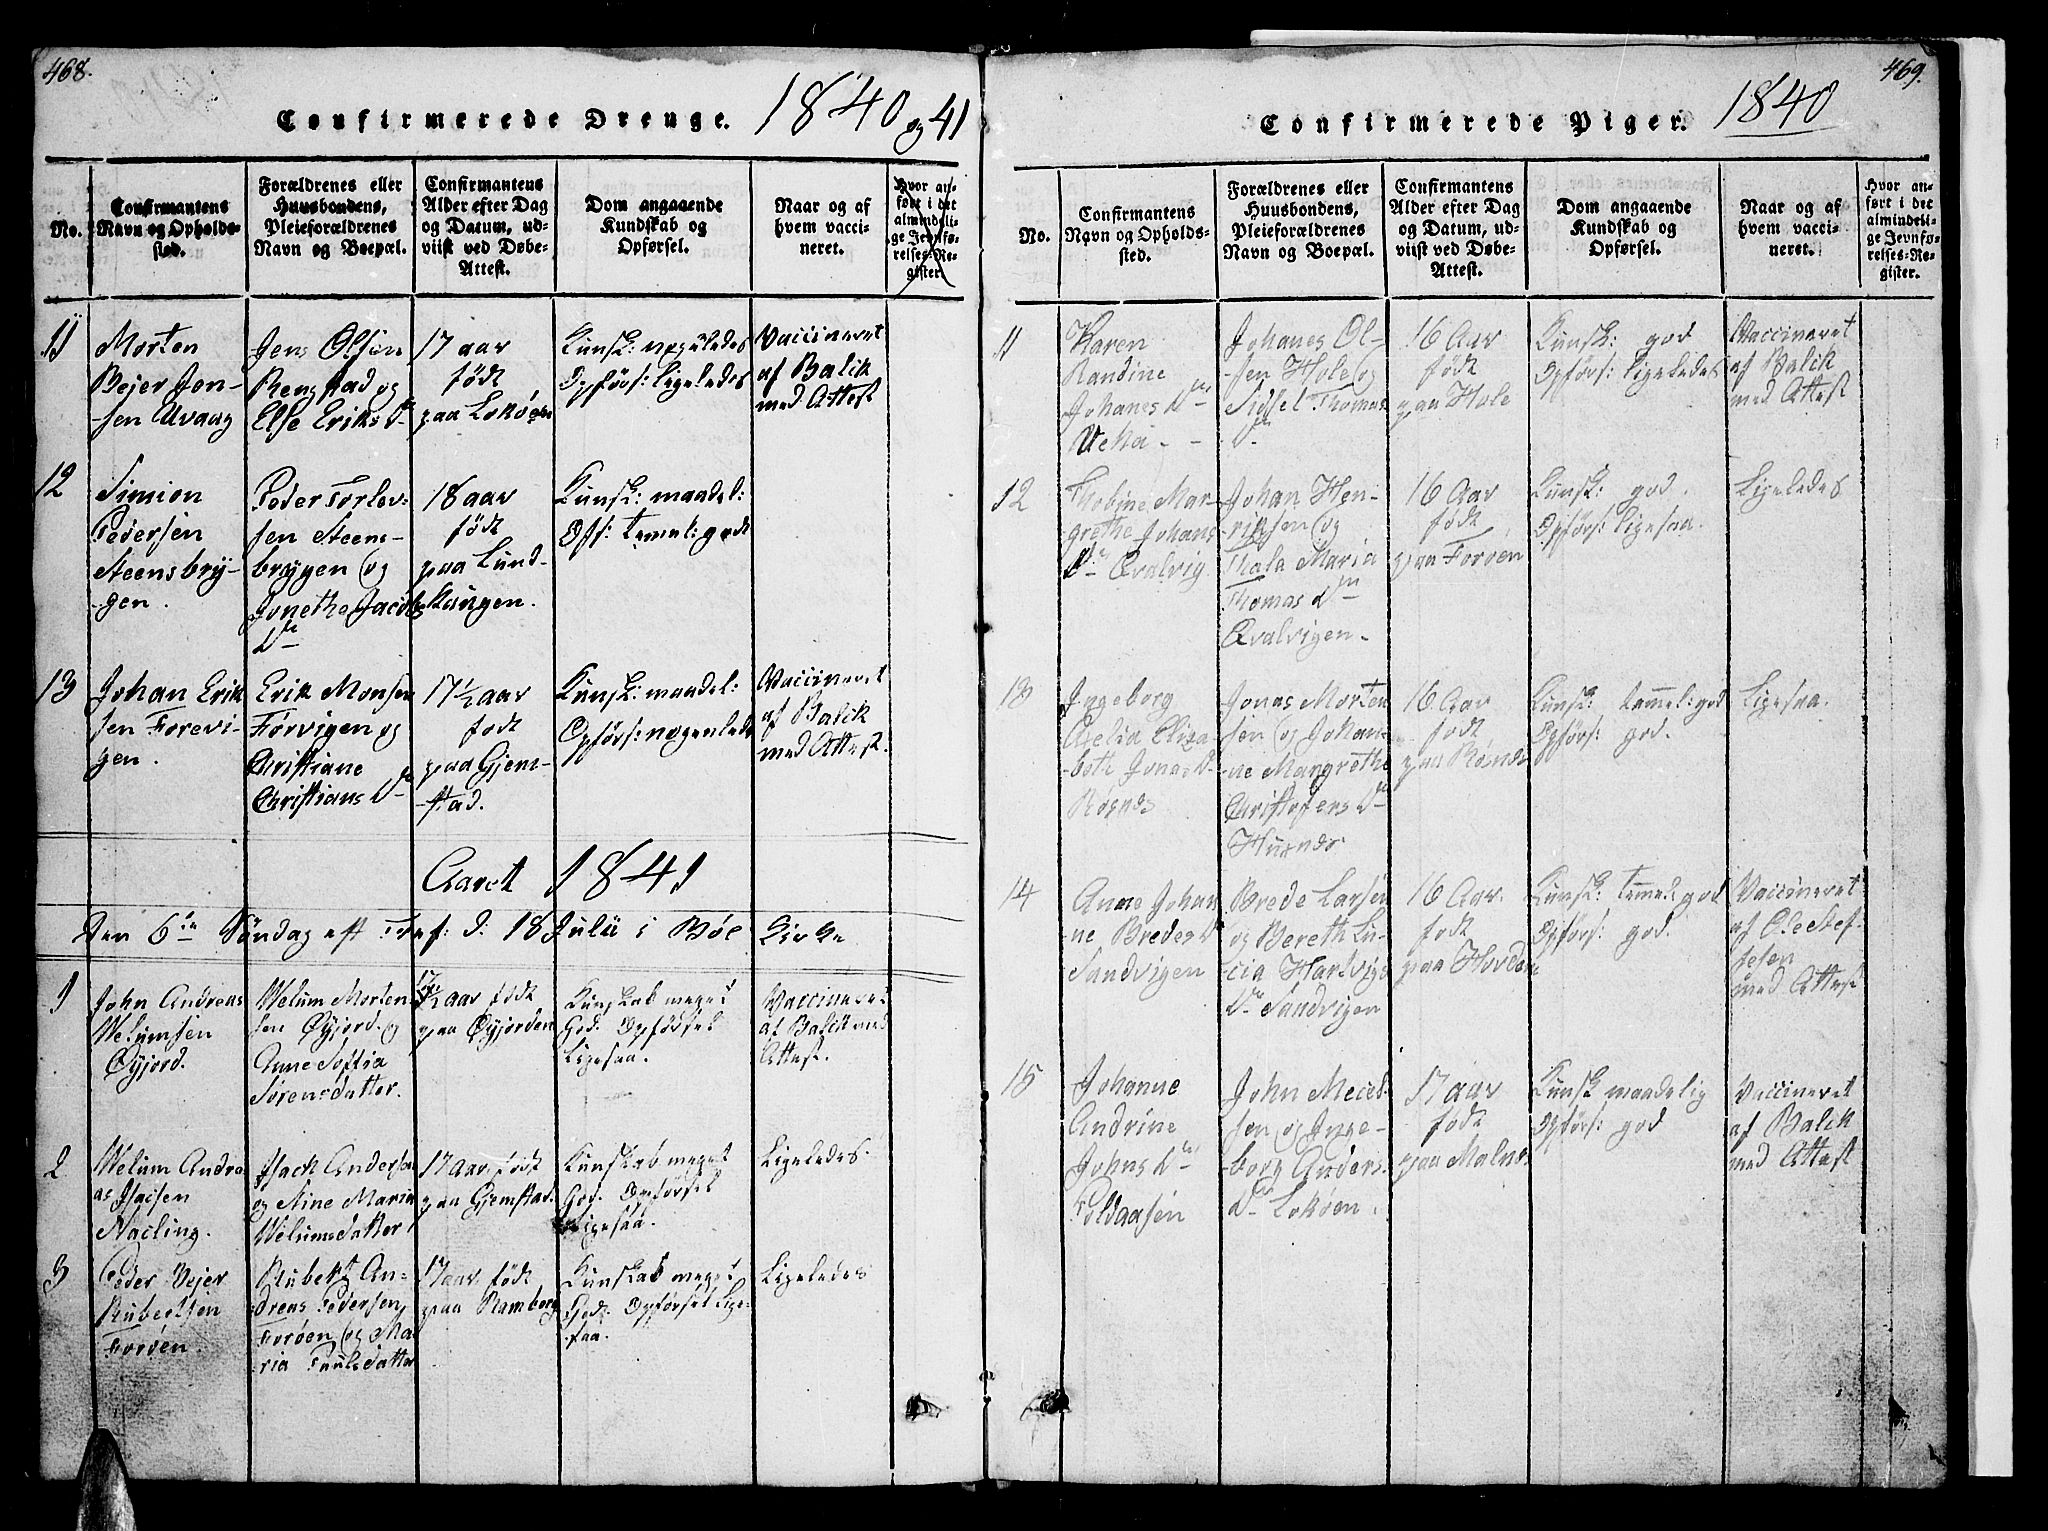 468.
Confirmerede Drenge. 1840 og 41
No.
Confirmantens
Navn og Opholds-
sted.
Forældrenes eller
Huusbondens,
Pleieforældrenes
Navn og Boepæl.
Confirmantens
Alder efter Dag
og Datum, ud-
viist ved Døbe-
Attest.
Dom angaaende
Kundskab og
Opførsel.
Naar og af
hvem vacci-
neret.
Hvor an-
ført i det
almindeli-
ge Jevnfø-
relses-Re-
gister.
11
Morten
Bejer Jen-
sen Alvaag
Jens Olsen
Ringstad og
Else Eriks Dr
17 aar
født
paa Lokøen
Kunsk: noguledes
Opførs: ligeledes
Vaccineret
af Balik
med Attest
12
Simion
Pedersen
Steensbrÿ-
gen.
Peder Torlev-
sen Steens-
bryggen og
Jonetha Jacobs
Dr
18 aar
født
paa Lund-
kungen.
Kunsk: maadel:
Opf: temel: godt
13
Johan Erik
sen Forevi-
gen.
Erik Monsen
Førvigen og
Christiane
Christians Dr
17½ aar
født
paa Gjem-
stad.
Kunsk: maadel:
Opførs: nogenlede
Vaccineret
af Balik
med Attest.
Aaret 1841
Den 6te Søndag eft Tref: d: 18 Julii i Bøe Kirke
1
John Andreas
Welumsen
Øyjord.
Welum Morten
sen Øyjord og
Anne Sofia
Sørensdatter.
17½ aar født
paa Øyjorden
Kunskab meget
God. Opførsel
Ligesaa.
Vaccineret
af Balik med
Attest.
2
Welum Andre
as Isacsen
Nacling.
Isack Andersen
og Stine Maria
Welumsdatter
17 Aar født
paa Gjemstad.
Kunskab meget
God. Opførsel
Ligesaa.
Ligeledes.
3
Peder Bejer
Rubertsen
Forøen.
Rubert An-
dreas Pedersen
Forøen og Ma-
ria Poulsdatter
17 aar født
paa Ramberg
Kunskab meget
God. Opførsel Lige-
saa.
Ligeledes
469.
Confirmerede Piger. 1840
No.
Confirmantens
Navn og Opholds-
sted.
Forældrenes eller
Huusbondens,
Pleieforældrenes
Navn og Boepæl.
Confirmantens
Alder efter Dag
og Datum, ud-
viist ved Døbe-
Attest.
Dom angaaende
Kundskab og
Opførsel.
Naar og af
hvem vacci-
neret.
Hvor an-
ført i det
almindeli-
ge Jevnfø-
relses-Re-
gister.
11
Karen
Randine
Johanes Dr
Johanes Ol-
sen Hole og
Sidsel Thomas
Dr
16 Aar
født
paa Hole
Kunsk: god
Opførs: ligeledes
Vaccineret
af Balik
med Attest
12
Thobine Mar-
grethe Johans
Dr Qvalvig
Johan Hen-
riksen og
Thala Maria
Thomas Dr
Qvalvigen.
16 Aar
født
paa Forøen
Kunsk: god.
Opførs: ligesaa.
Ligeledes
13
Ingeborg
Eliza-
beth Jonas Dr
Røsnes
Jonas Morten
sen og Johan-
ne Mangrethe
Christofers Dr
16 Aar
født
paa Røsnes
Kunsk: temmel: god
Opførs: god.
Ligesaa.
14
Anne Johan
ne Bredes Dr
Sandvigen
Brede Larsen
og Bereth Lu-
cia Hartvigs
Dr Sandvigen
16 Aar
født
paa Hovden
Kunsk: temel: god
Opførs: god.
Vaccineret
af Ole Stef-
fesen
med Attest
15
Johanne
Andrine
Johns Dr
John Mecel-
sen og Inge-
borg Anders
Dr Lokøen.
17 aar
født
paa Malnes
Kunsk maadelig
Opførs: god
Vaccineret
af Balik
med Attest